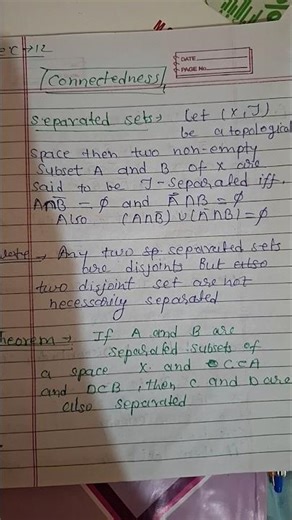 er → 12
DATE
PAGE No.
Connectedness
Separated sets → Let (X, J)
be a topological
space then two non-empty
subset A and B of X are
said to be J-separated iff.
A∩B̄ = ϕ and Ā∩B = ϕ
Also (A∩B̄) ∪ (Ā∩B) = ϕ
Note → Any two separated sets
are disjoints But
two disjoint set are not
necessarily separated
Theorem → If A and B are
separated subsets of
a space X and C⊂A
and D⊂B, then C and D are
also separated